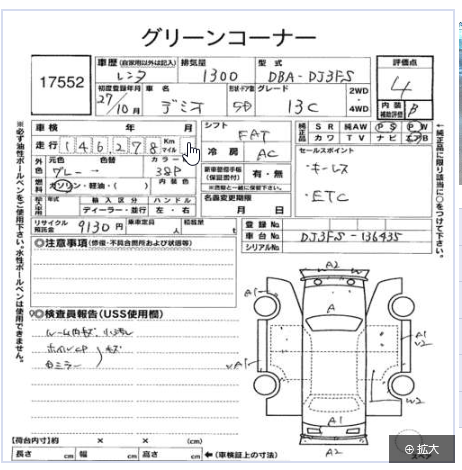 グリーンコーナー
17552
車歴 (自家用以外は記入) 排気量 型式 評価点
レンタ 1300 DBA-DJ3FS 4
初度登録年月 車名 形状・ドア数 グレード 2WD
27/10月 デミオ 5D 13C 4WD
内装 補助評価 B
車検 年 月 シフト FAT
走行 146,278 Km マイル
純正品 SR 純AW PS PW
カワ TV ナビ エアB
冷房 AC
外色 元色 色替 カラーNo
グレー → 38P
燃料 ガソリン・軽油・( ) 内装色
新車整備手帳(保証書付) 有・無
セールスポイント
・キーレス
・ETC
年式 輸入区分 ハンドル
ディーラー・並行 左・右
名義変更期限
月 日
リサイクル預託金 9130円 乗車定員 人 積載量 t
登録No.
車台No. DJ3FS-136435
シリアルNo.
◎注意事項 (修復・不具合箇所および状態等)
◎検査員報告(USS使用欄)
ルーム内キズ 小汚れ
ホイルCP
ミラー キズ
A2
A1
A
A1
W2
A1
A2
【荷台内寸】約 × × (cm)
長さ cm 幅 cm 高さ cm ←(車検証上の寸法)
※必ず油性ボールペンをご使用下さい。水性ボールペンは使用できません。
←純正品に限り該当に○をつけて下さい。
拡大